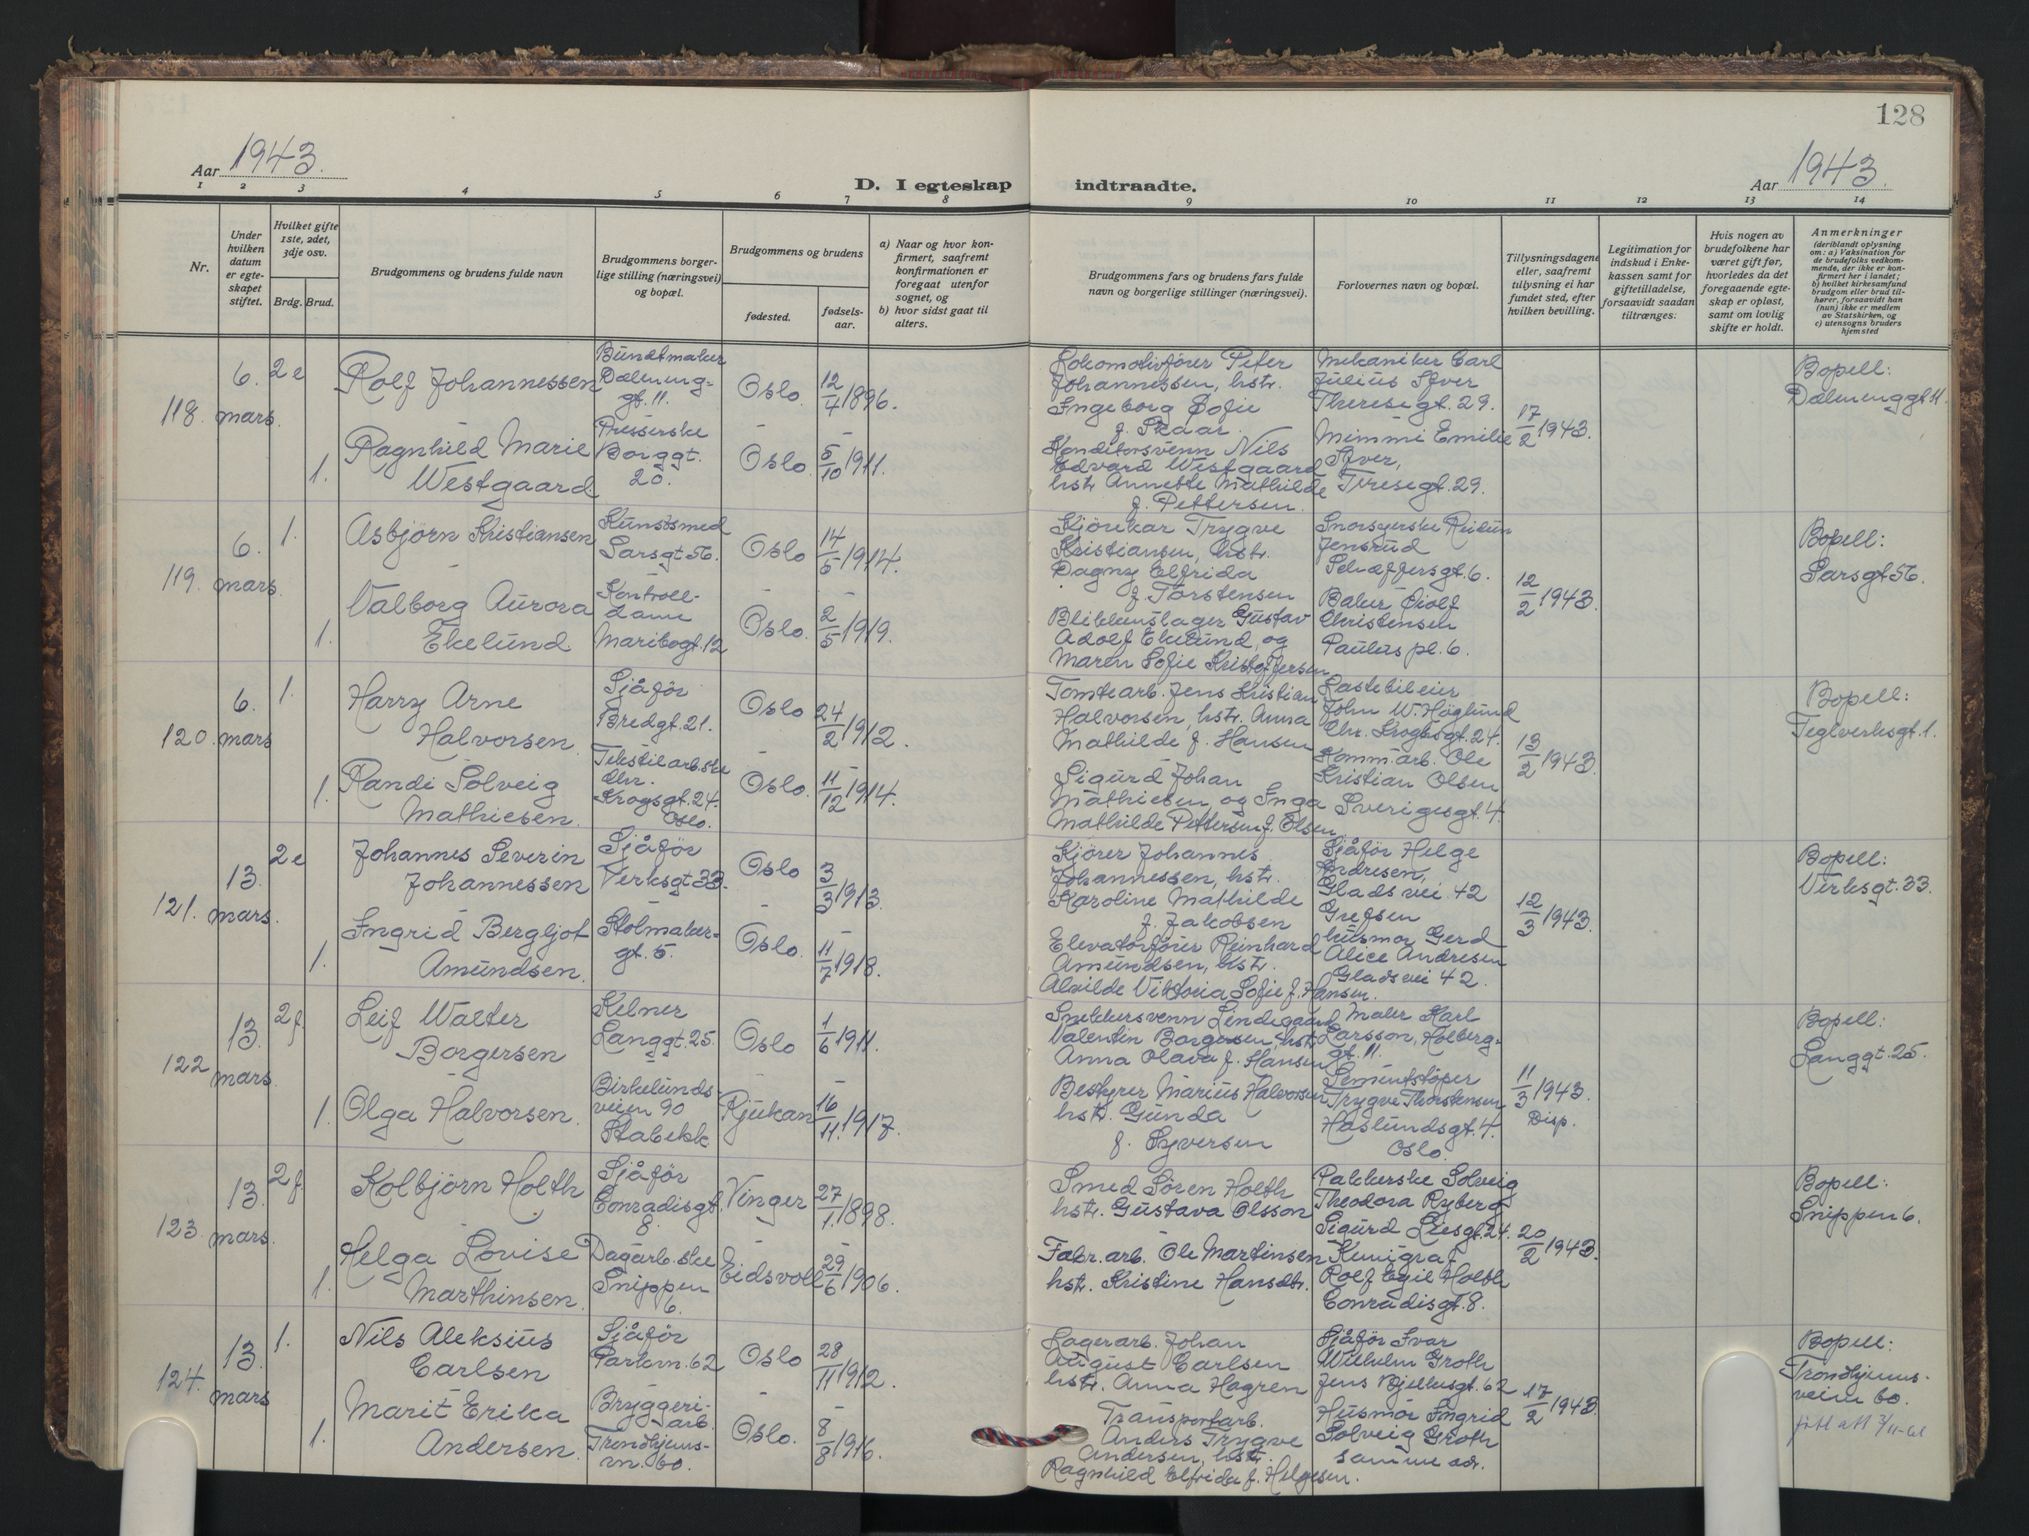 128
Aar 1943.
D. I egteskap indtraadte.
Aar 1943.
1 2 3 4 5 6 7 8 9 10 11 12 13 14
Nr.
Under hvilken datum er egte-skapet stiftet.
Hvilket gifte 1ste, 2det, 3dje osv.
Brdg. Brud.
Brudgommens og brudens fulde navn
Brudgommens borger-lige stilling (næringsvei) og bopæl.
Brudgommens og brudens
fødested.
fødsels-aar.
a) Naar og hvor kon-firmert, saafremt konfirmationen er foregaat utenfor sognet, og
b) hvor sidst gaat til alters.
Brudgommens fars og brudens fars fulde navn og borgerlige stillinger (næringsvei).
Forlovernes navn og bopæl.
Tillysningsdagene eller, saafremt tillysning ei har fundet sted, efter hvilken bevilling.
Legitimation for indskud i Enke-kassen samt for giftetilladelse, forsaavidt saadan tiltrænges.
Hvis nogen av brudefolkene har været gift før, hvorledes da det foregaaende egte-skap er opløst, samt om lovlig skifte er holdt.
Anmerkninger
(deriblandt oplysning om: a) Vaksination for de brudefolks vedkom-mende, der ikke er kon-firmert her i landet; b) hvilket kirkesamfund brudgom eller brud til-hører, forsaavidt han (hun) ikke er medlem av Statskirken, og c) utensogns bruders hjemsted
118. 6. mars
2e
Rolf Johannessen
Buntmaker
Dæleneng-
gt. 11.
Oslo.
12/4 1896.
Lokomotivfører Peter
Johannessen, hstr.
Ingeborg Sofie
f. Skaar.
Mekaniker Carl
Julius Syver
Theresegt. 29.
17/2 1943.
Bopell:
Dælenenggt 11.
1.
Ragnhild Marie
Westgaard
Presserske
Borggt.
20.
Oslo.
5/10 1911.
Konditorsvenn Nils
Edvard Westgaard
hstr. Annette Mathilde
f. Pettersen.
Mimmi Emilie
Syver,
Teresegt. 29.
119. 6. mars
1.
Asbjørn Kristiansen
Kunstsmed
Sarsgt 56.
Oslo
14/5 1914.
Kjørekar Trygve
Kristiansen, hstr.
Dagny Elfrida
f. Torstensen
Jensrud
Schæffersgt. 6.
12/2 1943.
Bopell:
Sarsgt 56.
1.
Valborg Aurora
Ekelund
Kontroll-
dame
Maribogt. 12
Oslo.
2/5 1919.
Blikkenslager Gustav
Adolf Ekelund, og
Maren Sofie Kristoffersen
Baker
Christensen
Paulus pl. 6.
120. 6. mars
1.
Harry Arne
Halvorsen.
Sjåfør
Bredgt. 21.
Oslo
24/2 1912.
Tomtearb. Jens Kristian
Halvorsen, hstr. Anna
Mathilde f. Hansen
Lastebileier
John W. Høglund
Chr. Kroghsgt. 24.
13/2 1943.
Bopell:
Teglverksgt. 1.
1.
Randi Solveig
Mathiesen.
Tekstilarb.ske
Chr.
Krogsgt. 24.
Oslo.
Oslo.
11/12 1914.
Sigurd Johan
Mathiesen og Inga
Mathilde Pettersen f. Olsen.
Komm.arb. Ole
Kristian Olsen
Sverigesgt. 4.
121. 13. mars.
2e
Johannes Severin
Johannessen
Sjåfør
Verksgt 33.
Oslo
3/3 1913.
Kjører Johannes
Johannessen, hstr.
Karoline Mathilde
f. Jakobsen
Sjåfør Helge
Andresen,
Glads vei 42
Grefsen
12/3 1943.
Bopell:
Verksgt. 33.
1.
Ingrid Bergljot
Amundsen.
Stolmaker-
gt. 5.
Oslo.
11/7 1918.
Elevatorfører Reinhard
Amundsen, hstr.
Alvilde Viktoria Sofie f. Hansen.
husmor Gerd
Alice Andresen
Glads vei 42.
122 13. mars
2f.
Leif Walter
Borgersen
Kelner
Langgt. 25.
Oslo
1/6 1911.
Snekkersvenn Lindegaard
Valentin Borgersen, hstr.
Anna Olava f. Hansen
Maler Karl
Larsson, Holberg-
gt. 11.
11/3 1943.
Disp.
Bopell:
Langgt. 25.
1.
Olga Halvorsen.
Birkelunds-
veien 90
Stabekk
Rjukan
16/11. 1917.
Bestyrer Marius Halvorsen
hstr. Gunda
f. Syversen
Sementstøper
Trygve Thorstensen
Haslundsgt. 4.
Oslo.
123. 13. mars.
2f.
Kolbjørn Holth
Sjåfør
Conradisgt.
8.
Vinger
27/1. 1898.
Smed Søren Holth
hstr. Gustava Olsson
Pakkerske Solveig
Theodora Ryberg
Sigurd Liesgt. 24.
20/2 1943.
Bopell:
Snippen 6.
1.
Helga Lovise
Marthinsen.
Dagarb.ske
Snippen
6.
Eidsvoll
29/6 1906.
Fabr. arb. Ole Martinsen
hstr. Kristine Hansdtr.
Kemigraf
Rolf Egil Holth
Conradisgt. 8.
124. 13. mars
1.
Nils Aleksius
Carlsen
Sjåfør
Parkvn. 62
Oslo
28/11 1912.
Lagerarb. Johan
August Carlsen
hstr. Anna Hagren
Sjåfør Ivar
Wilhelm Groth
Jens Bjelkesgt. 62
17/2 1943.
Bopell:
Trondhjems-
veien 60.
1.
Marit Erika
Andersen.
Bryggeri-
arb.
Trondhjems-
vn. 60.
Oslo.
8/8 1916.
Transportarb.
Anders Trygve
Andersen, hstr.
Ragnhild Elfrida f. Helgesen.
Husmor Ingrid
Solveig Groth
samme adr.